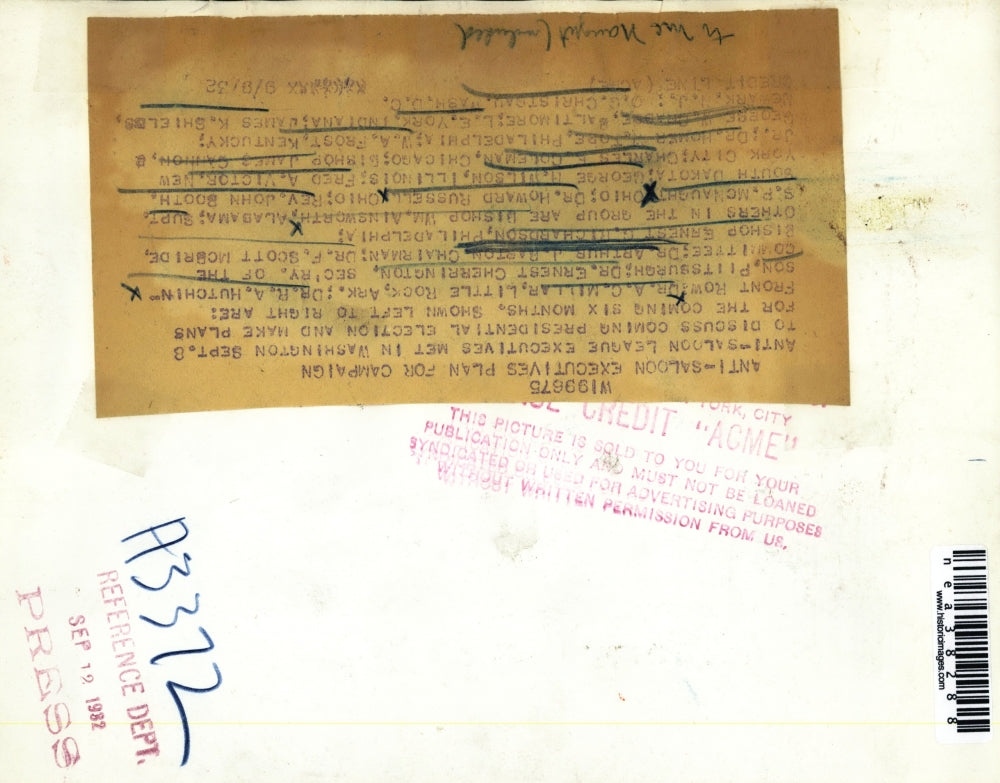 W199675
ANTI-SALOON EXECUTIVES PLAN FOR CAMPAIGN
ANTI-SALOON LEAGUE EXECUTIVES MET IN WASHINGTON SEPT.8
TO DISCUSS COMING PRESIDENTIAL ELECTION AND MAKE PLANS
FOR THE COMING SIX MONTHS. SHOWN LEFT TO RIGHT ARE:
FRONT ROW;DR.A.C.MILLAR,LITTLE ROCK,ARK.;DR.R.A.HUTCHIN-
SON,PIITSBURGH;DR.ERNEST CHERRINGTON, SEC'RY. OF THE
COMMITTEE;DR.ARTHUR J.BARTON,CHAIRMAN;DR.F.SCOTT MCBRIDE,
BISHOP ERNEST G.RICHARDSON,PHILADELPHIA;
OTHERS IN THE GROUP ARE BISHOP WM.AINSWORTH,ALABAMA;SUPT.
S.P.MCNAUGHT,OHIO;DR.HOWARD RUSSELL,OHIO;REV.JOHN BOOTH,
SOUTH DAKOTA;GEORGE H.WILSON,ILLINOIS;FRED A.VICTOR,NEW
YORK CITY;CHARLES COLEMAN,CHICAGO;BISHOP JAMES CANNON,
JR;DR.HOMER PHILADELPHIA;W.A.FROST,KENTUCKY;
GEORGE BALTIMORE;L.E.YORK,INDIANA;JAMES K.SHIELDS,
NEWARK,N.J.; O.G.CHRISTGAU,WASH.D.C.
CREDIT LINE (ACME) 9/8/32
CREDIT "ACME"
YORK, CITY
THIS PICTURE IS SOLD TO YOU FOR YOUR
PUBLICATION ONLY AND MUST NOT BE LOANED
SYNDICATED OR USED FOR ADVERTISING PURPOSES
WITHOUT WRITTEN PERMISSION FROM US.
A3322
REFERENCE DEPT.
SEP 12 1932
PRESS
nea38288
www.historicimages.com